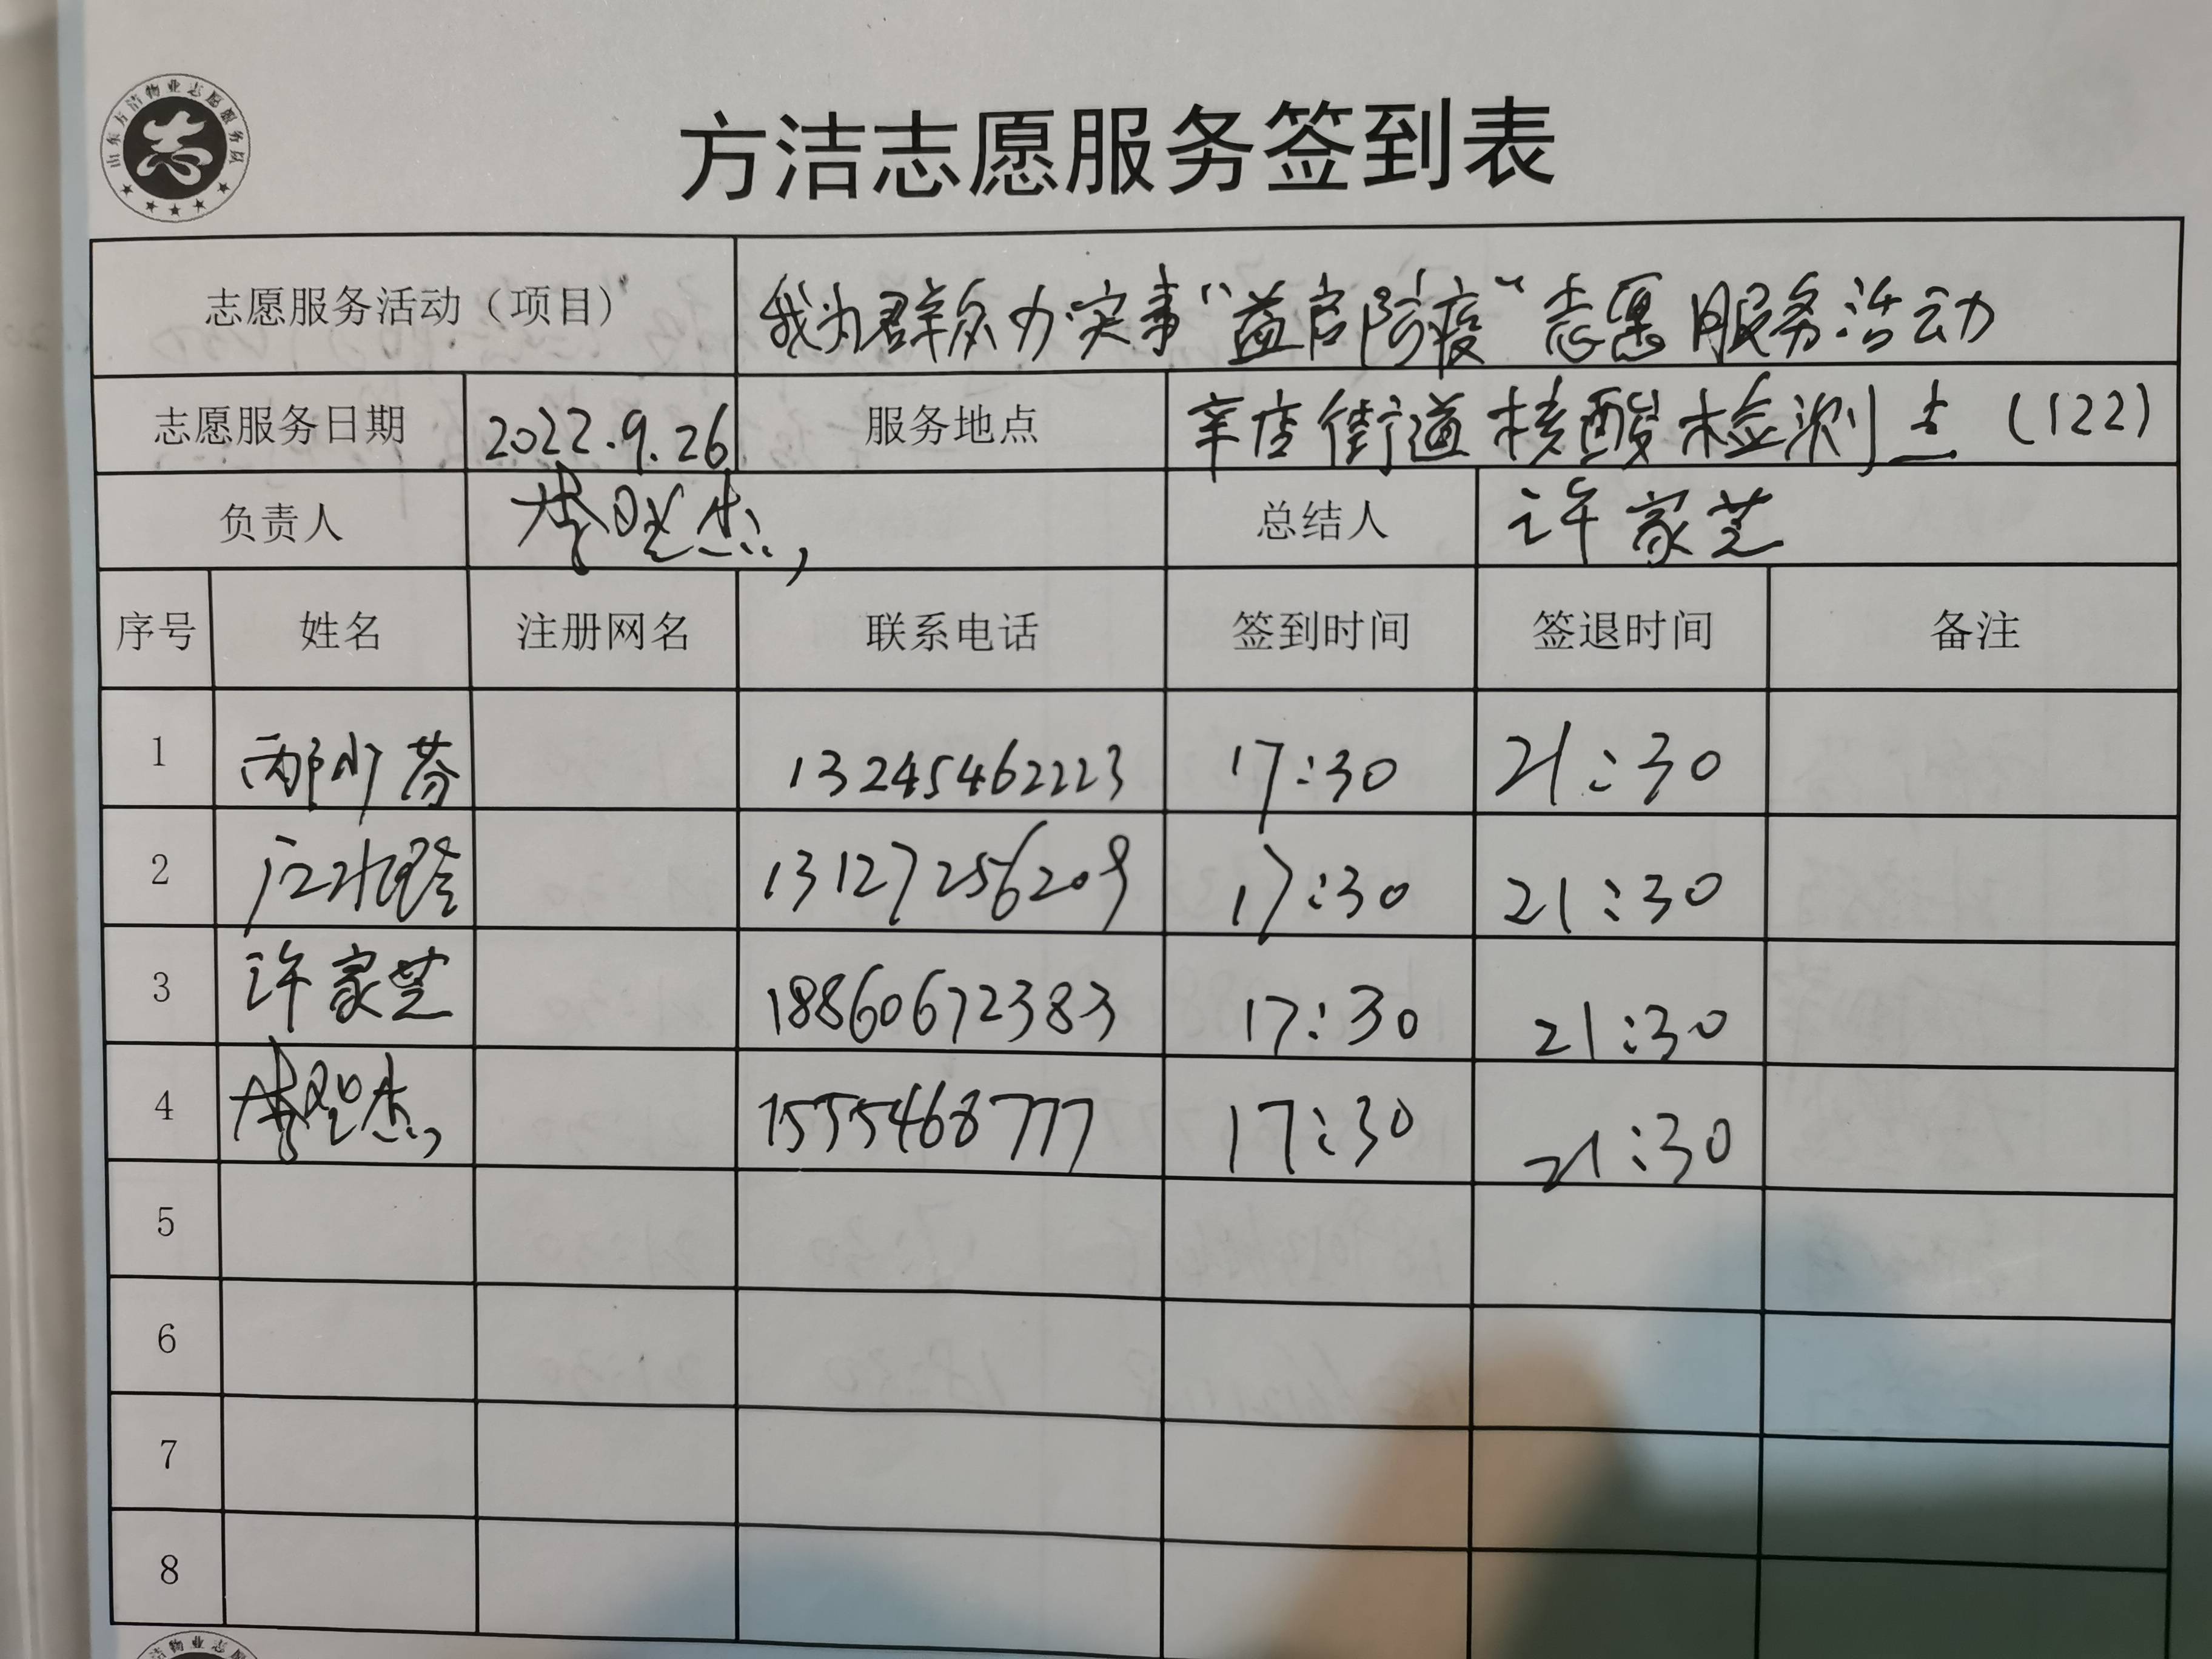 山东方洁物业志愿服务队
志
方洁志愿服务签到表
志愿服务活动（项目） 我为群众办实事“益启防疫”志愿服务活动
志愿服务日期 2022.9.26 服务地点 辛店街道核酸检测点（122）
负责人 总结人 许家芝
序号 姓名 注册网名 联系电话 签到时间 签退时间 备注
1 13245462223 17:30 21:30
2 13127256209 17:30 21:30
3 许家芝 18860672383 17:30 21:30
4 1555468777 17:30 21:30
5
6
7
8
洁物业志愿